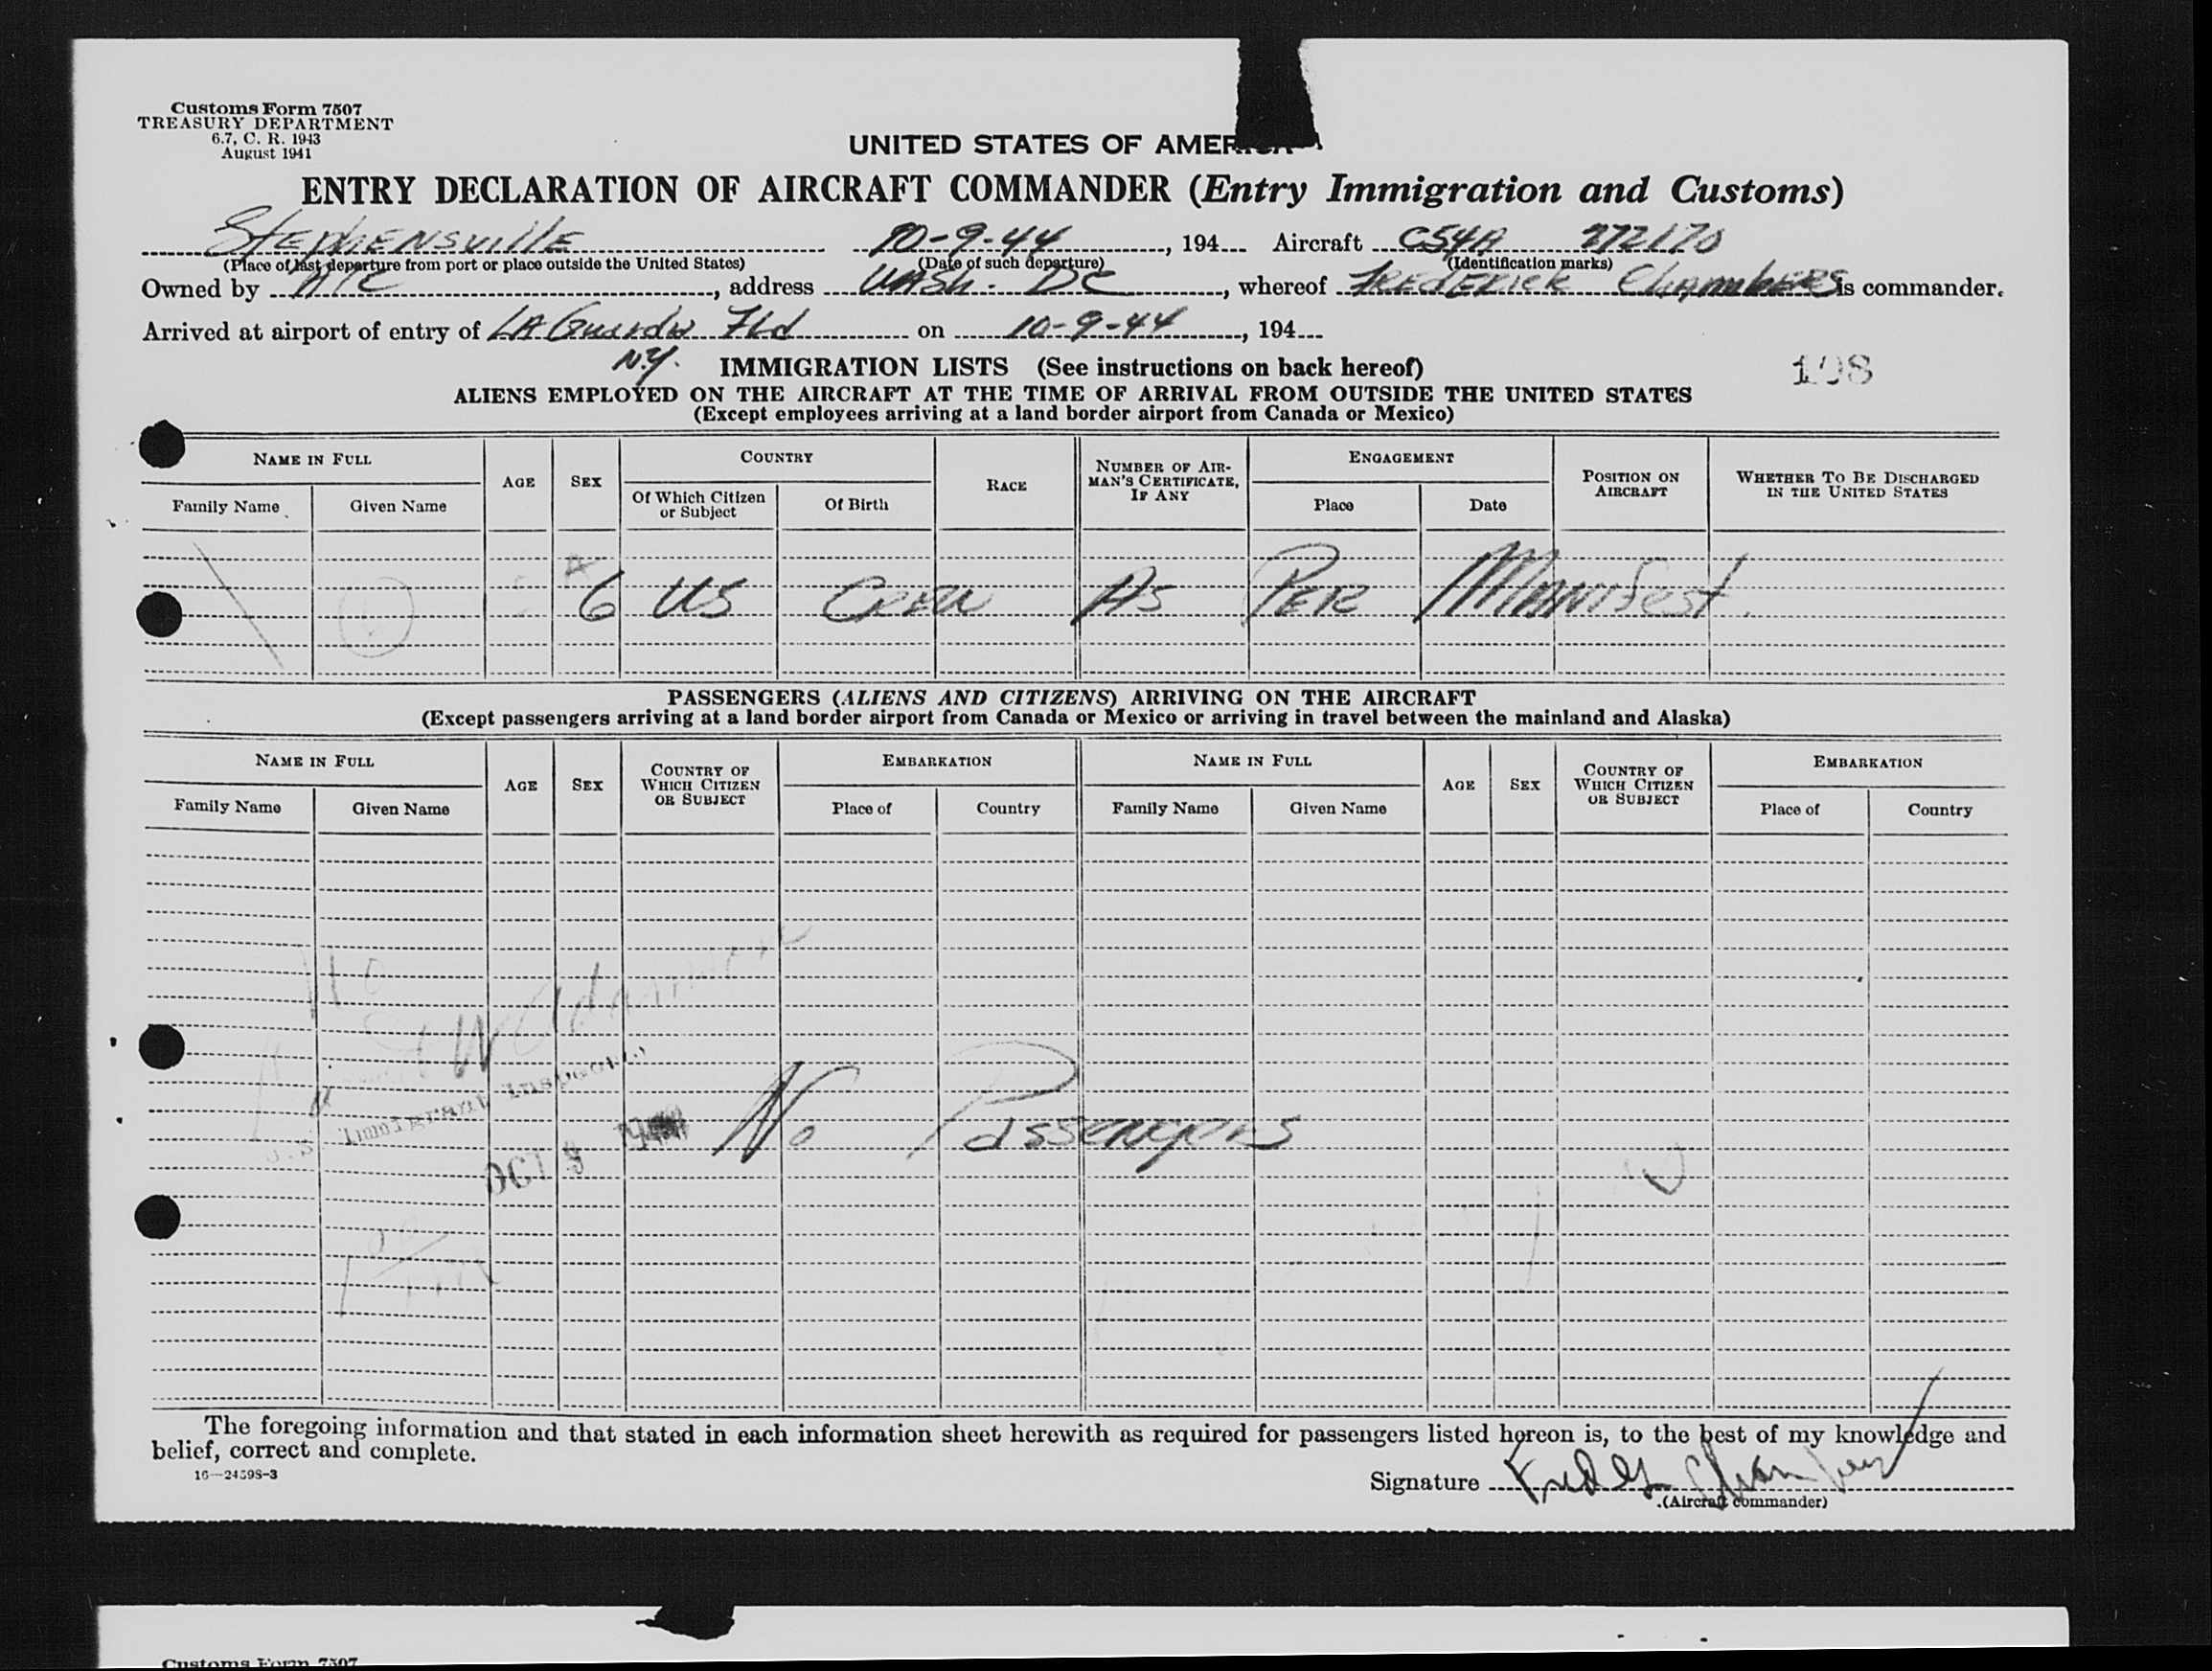 Customs Form 7507
TREASURY DEPARTMENT
6.7, C. R. 1943
August 1941
UNITED STATES OF AMERICA
ENTRY DECLARATION OF AIRCRAFT COMMANDER (Entry Immigration and Customs)
Stephensville 10-9-44, 194 Aircraft C54A 272170
(Place of last departure from port or place outside the United States) (Date of such departure) (Identification marks)
Owned by ATC, address Wash. DC, whereof Frederick Chambers is commander.
Arrived at airport of entry of La Guardia Fld on 10-9-44, 194
N.Y. IMMIGRATION LISTS (See instructions on back hereof) 198
ALIENS EMPLOYED ON THE AIRCRAFT AT THE TIME OF ARRIVAL FROM OUTSIDE THE UNITED STATES
(Except employees arriving at a land border airport from Canada or Mexico)
NAME IN FULL AGE SEX COUNTRY RACE NUMBER OF AIRMAN'S CERTIFICATE, IF ANY ENGAGEMENT POSITION ON AIRCRAFT WHETHER TO BE DISCHARGED IN THE UNITED STATES
Family Name Given Name Of Which Citizen or Subject Of Birth Place Date
6 US Crew As Per Manifest.
PASSENGERS (ALIENS AND CITIZENS) ARRIVING ON THE AIRCRAFT
(Except passengers arriving at a land border airport from Canada or Mexico or arriving in travel between the mainland and Alaska)
NAME IN FULL AGE SEX COUNTRY OF WHICH CITIZEN OR SUBJECT EMBARKATION NAME IN FULL AGE SEX COUNTRY OF WHICH CITIZEN OR SUBJECT EMBARKATION
Family Name Given Name Place of Country Family Name Given Name Place of Country
Immigrant Inspector
No Passengers
OCT 9
The foregoing information and that stated in each information sheet herewith as required for passengers listed hereon is, to the best of my knowledge and
belief, correct and complete.
16—24598-3
Signature Fred G Chambers
(Aircraft commander)
Customs Form 7507